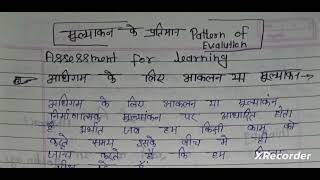 मुल्यांकन के प्रतिमान Pattern of
Evalution
Assessment for Learning
अधिगम के लिए आकलन या मुल्यांकन →
अधिगम के लिए आकलन या मुल्यांकन
निर्माणात्मक मुल्यांकन पर आधारित होता
है अर्थात जब हम किसी काम को
करते समय इसके बीच मे ही
जाच करते है कि हम
XRecorder